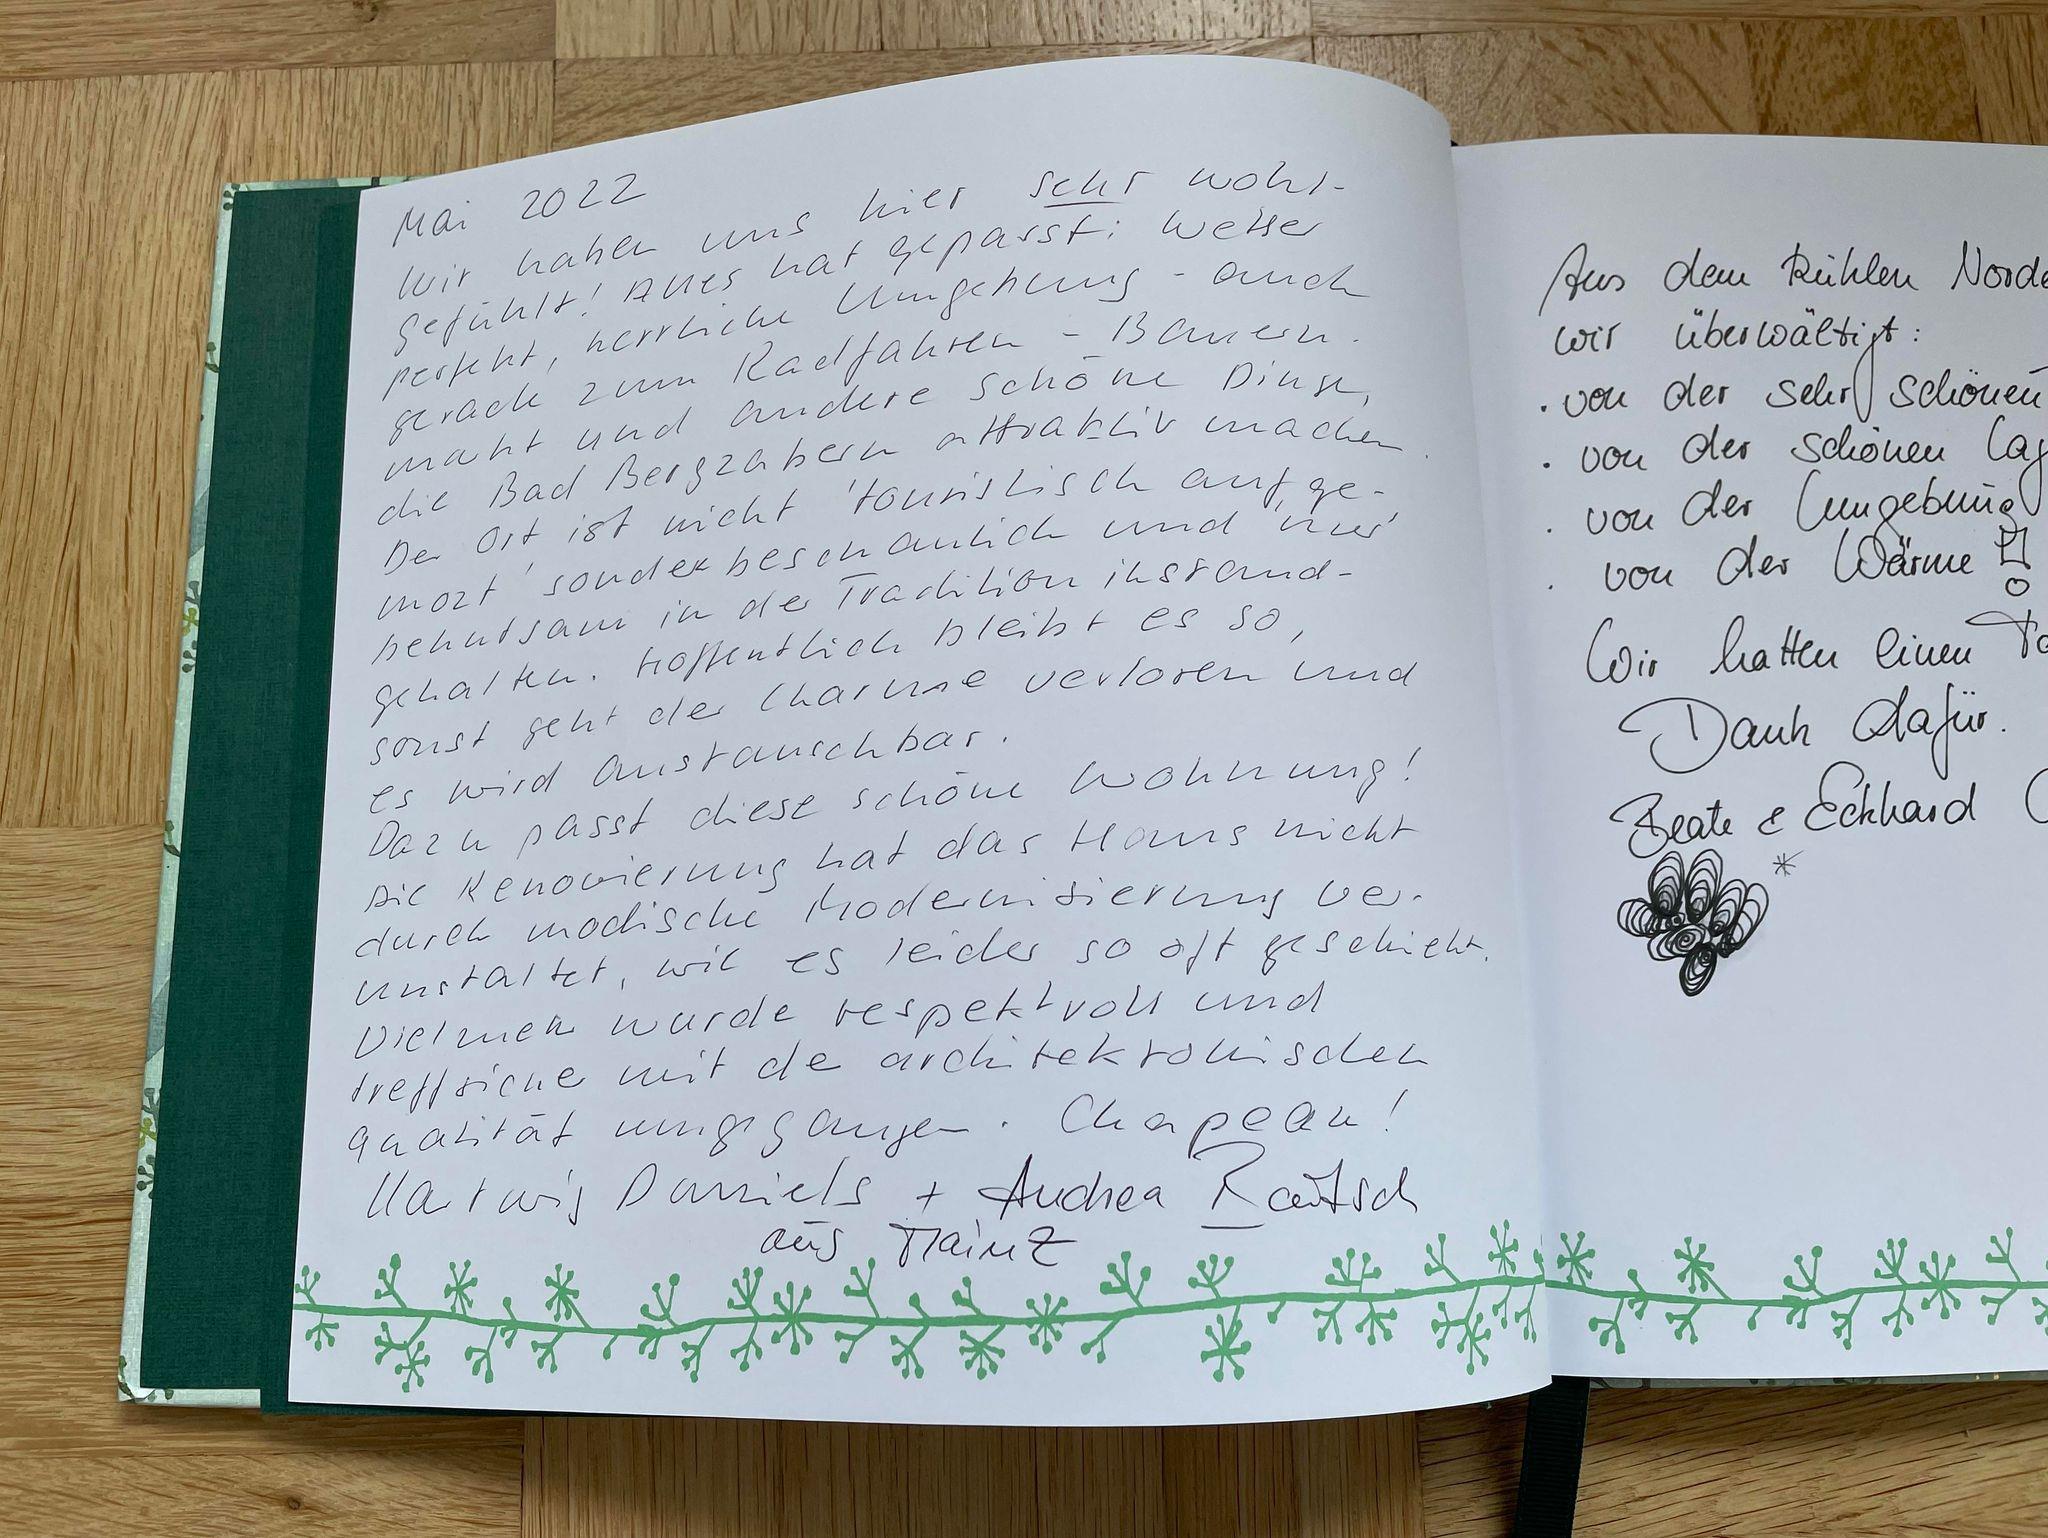 Mai 2022
Wir haben uns hier sehr wohl-
gefühlt! Alles hat gepasst: Wetter
perfekt, herrliche Umgebung - auch
gerade zum Radfahren - Bauern-
markt und andere schöne Dinge,
die Bad Bergzabern attraktiv machen.
Der Ort ist nicht 'touristisch aufge-
mozt' sonder beschaulich und 'nur'
behutsam in der Tradition instand-
gehalten. Hoffentlich bleibt es so,
sonst geht der Charme verloren und
es wird austauschbar.
Dazu passt diese schöne Wohnung!
Die Renovierung hat das Haus nicht
durch modische Modernisierung ver-
unstaltet, wie es leider so oft geschieht.
Vielmehr wurde respektvoll und
treffsicher mit de architektonischen
Qualität umgegangen. Chapeau!
Hartwig Daniels + Andrea
aus Mainz
Aus dem kühlen Norde
wir überwältigt:
. von der sehr schönen
. von der schönen Lag
. von der Umgebung
. von der Wärme!
Wir hatten einen
Dank dafür.
Beate & Eckhard